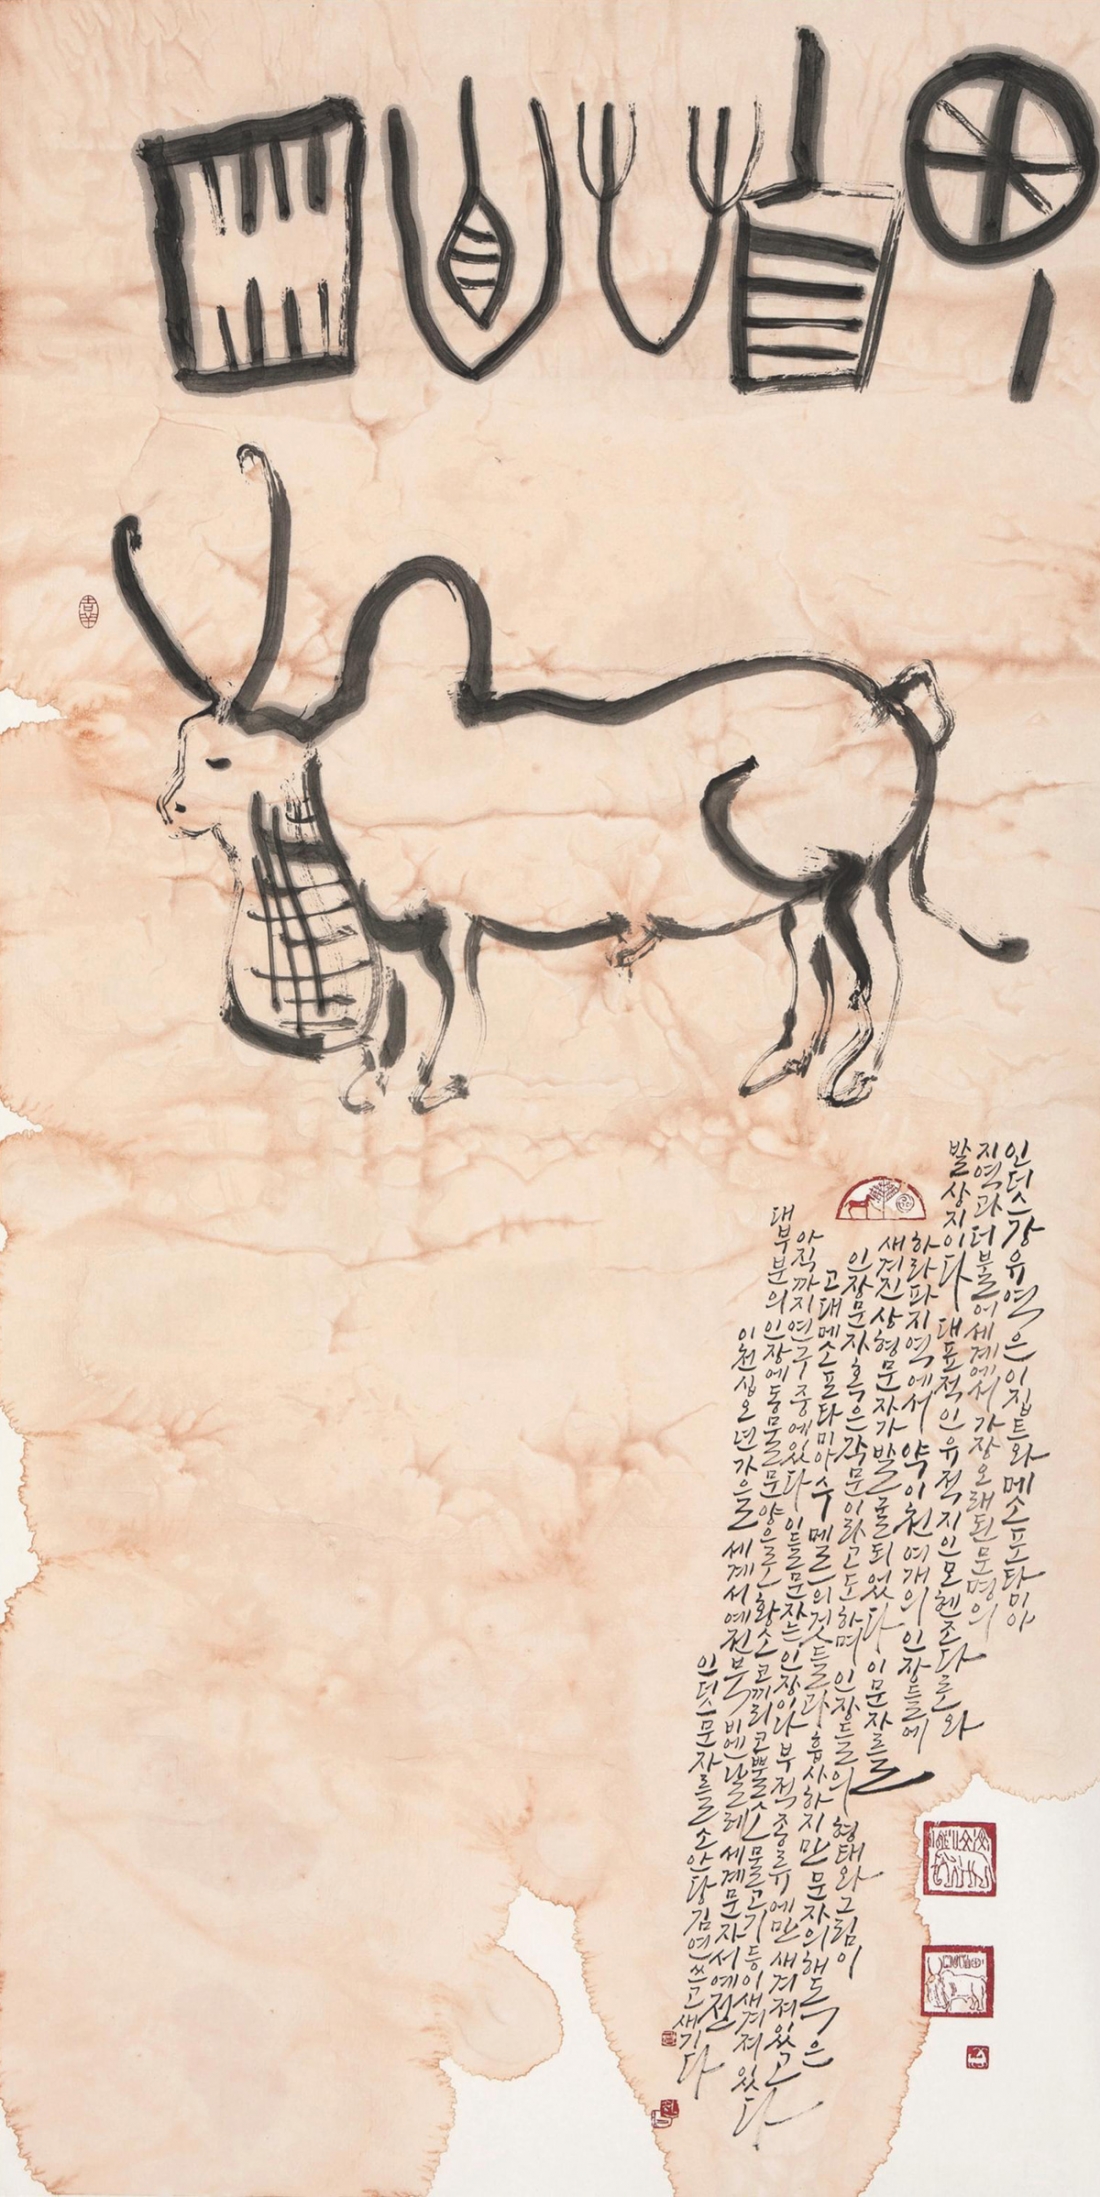 인더스강 유역은 이집트와 메소포타미아
지역과 더불어 세계에서 가장 오래된 문명의
발상지이다 대표적인 유적지인 모헨조다로와
하라파 지역에서 약 이천여 개의 인장들에
새겨진 상형문자가 발굴되었다 이 문자를
인장문자 혹은 각문이라고도 하며 인장들의 형태와 그림이
고대 메소포타미아 수메르의 것들과 흡사하지만 문자의 해독은
아직까지 연구 중에 있다 이들 문자는 인장이나 부적 종류에만 새겨져 있고
대부분의 인장에 동물 문양으로 황소 코끼리 코뿔소 물고기 등이 새겨져 있다
이천십오년 가을 세계서예전북비엔날레 세계문자서예전
인더스문자를 소안당 김연 쓰고 새기다